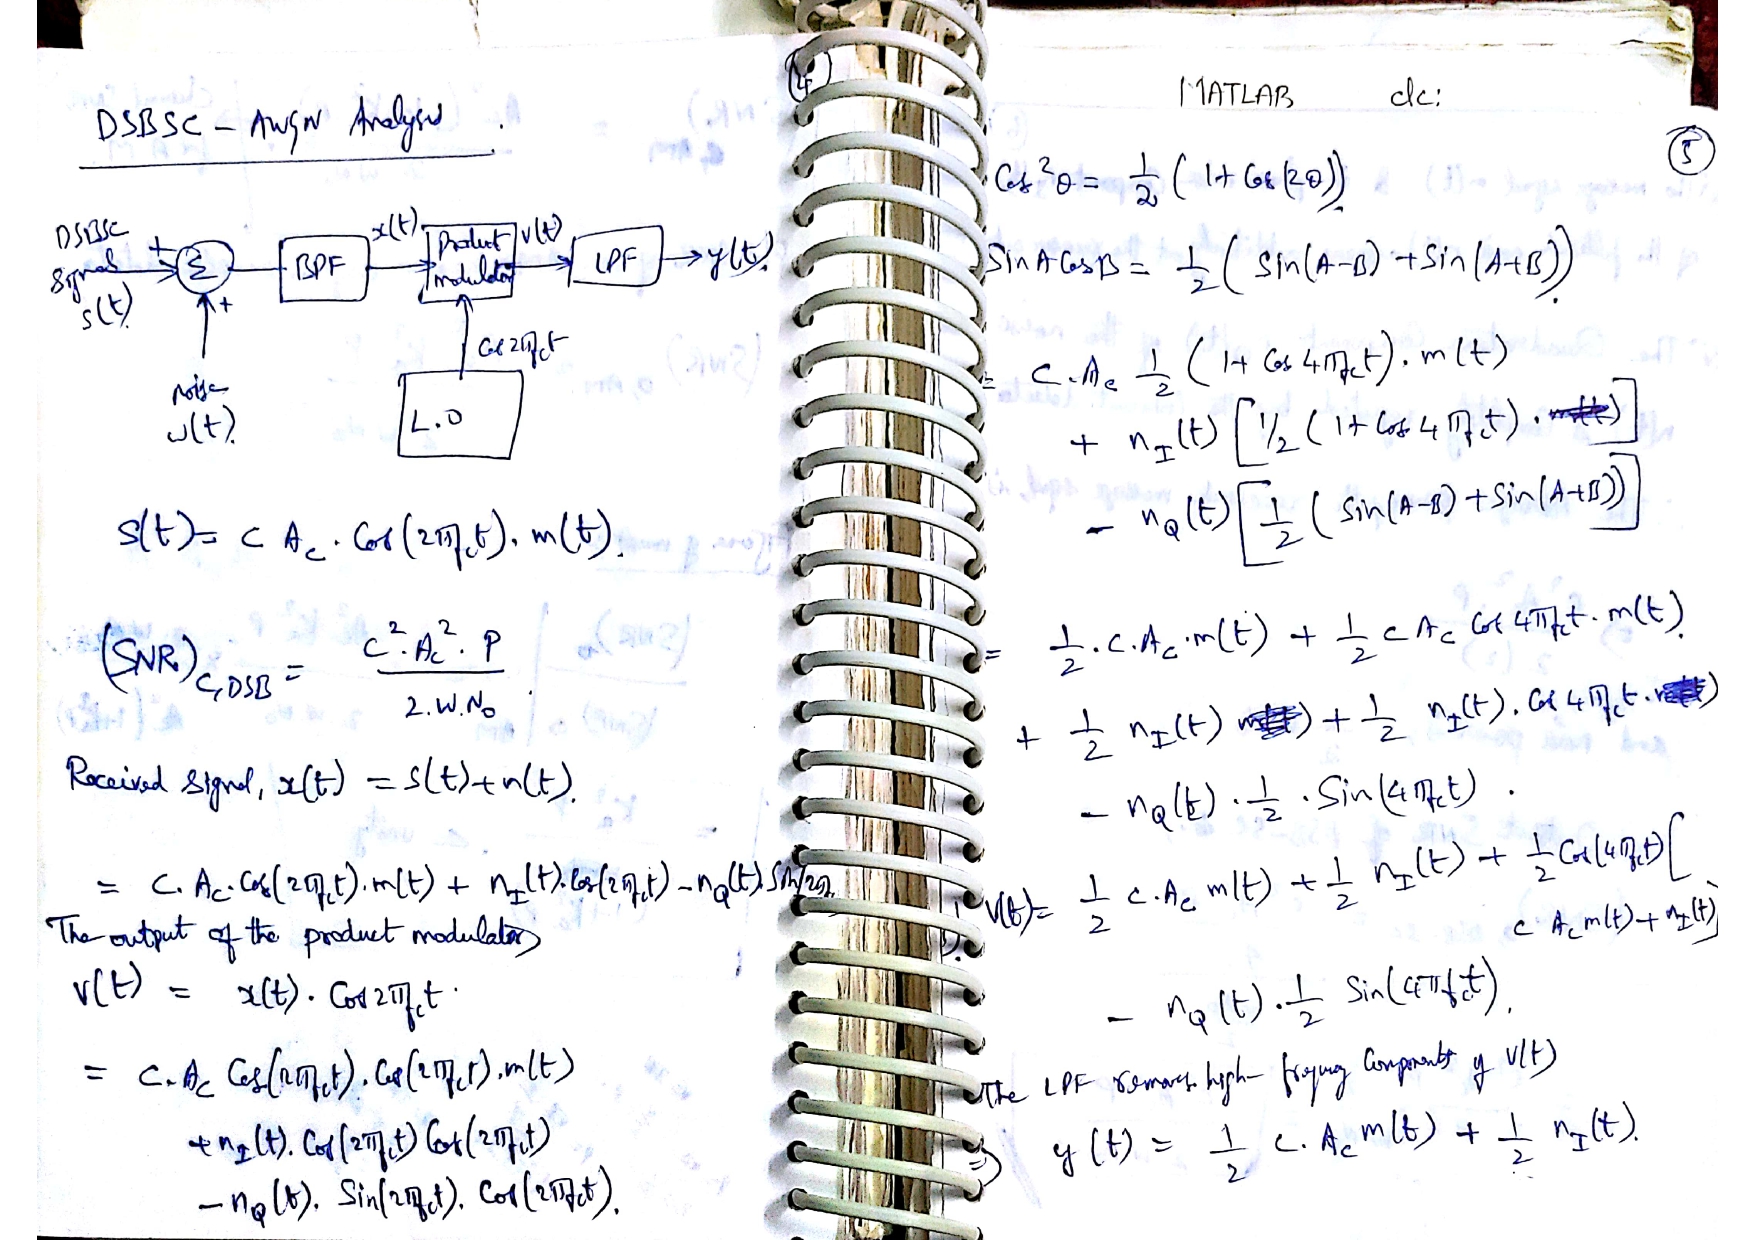 4
DSBSC - AWGN Analysis.
DSBSC
Signal
s(t)
+
Σ
+
noise
w(t)
BPF
x(t)
Product
modulator
v(t)
LPF
y(t)
Cos2πfct
L.O
S(t) = C Ac . Cos(2πfct). m(t).
(SNR)C,DSB = C². Ac². P / 2.W.N₀
Received Signal, x(t) = s(t)+n(t).
= C. Ac. Cos(2πfct).m(t) + nI(t). Cos(2πfct) - nQ(t). Sin(2π
The output of the product modulator
v(t) = x(t). Cos2πfct.
= C. Ac Cos(2πfct). Cos(2πfct).m(t)
+ nI(t). Cos(2πfct) Cos(2πfct)
- nQ(t). Sin(2πfct). Cos(2πfct).
MATLAB clc;
5
Cos²θ = 1/2 (1+ Cos(2θ))
Sin A Cos B = 1/2 ( Sin(A-B) + Sin(A+B))
= C.Ac 1/2 (1+ Cos 4πfct). m(t)
+ nI(t) [1/2 (1+ Cos 4πfct).]
- nQ(t) [1/2 ( Sin(A-B) + Sin(A+B))]
= 1/2 .C.Ac.m(t) + 1/2 C Ac Cos 4πfct. m(t)
+ 1/2 nI(t) + 1/2 nI(t). Cos 4πfct.
- nQ(t) . 1/2 . Sin(4πfct) .
V(t) = 1/2 C.Ac m(t) + 1/2 nI(t) + 1/2 Cos(4πfct) [
C Ac m(t) + nI(t)]
- nQ(t) . 1/2 Sin(4πfct).
The LPF removes high-frequency Components of V(t)
⇒ y(t) = 1/2 C. Ac m(t) + 1/2 nI(t).